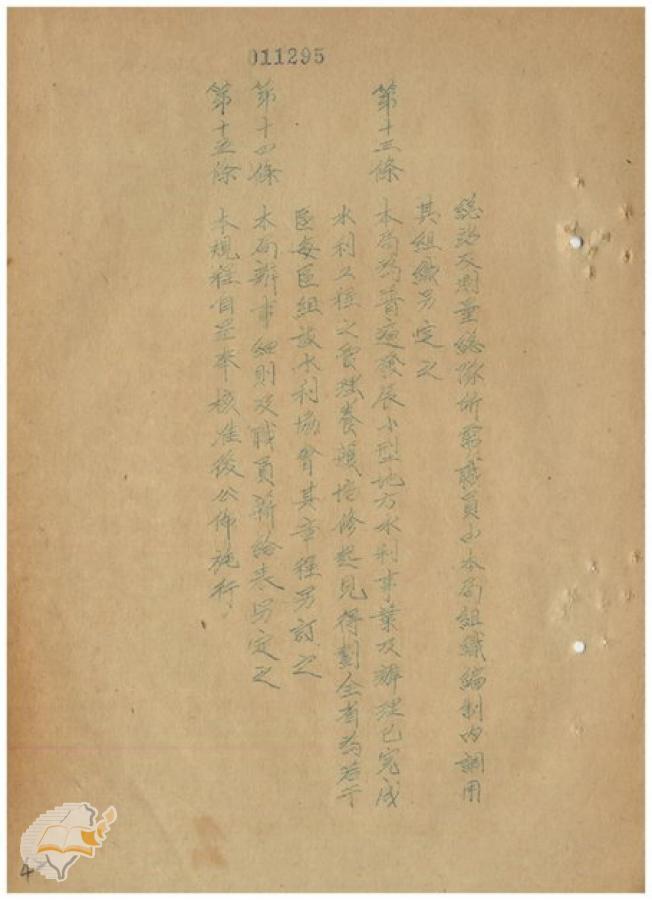 011295
總站及測量總隊所需職員由本局組織編制內調用
其組織另定之
第十三條 本局為普遍發展小型地方水利事業及辦理已完成
水利工程之管理養護培修起見得劃全省為若干
區每區組設水利協會其章程另訂之
第十四條 本局辦事細則及職員薪給表另定之
第十五條 本規程自呈奉核准後公佈施行
4